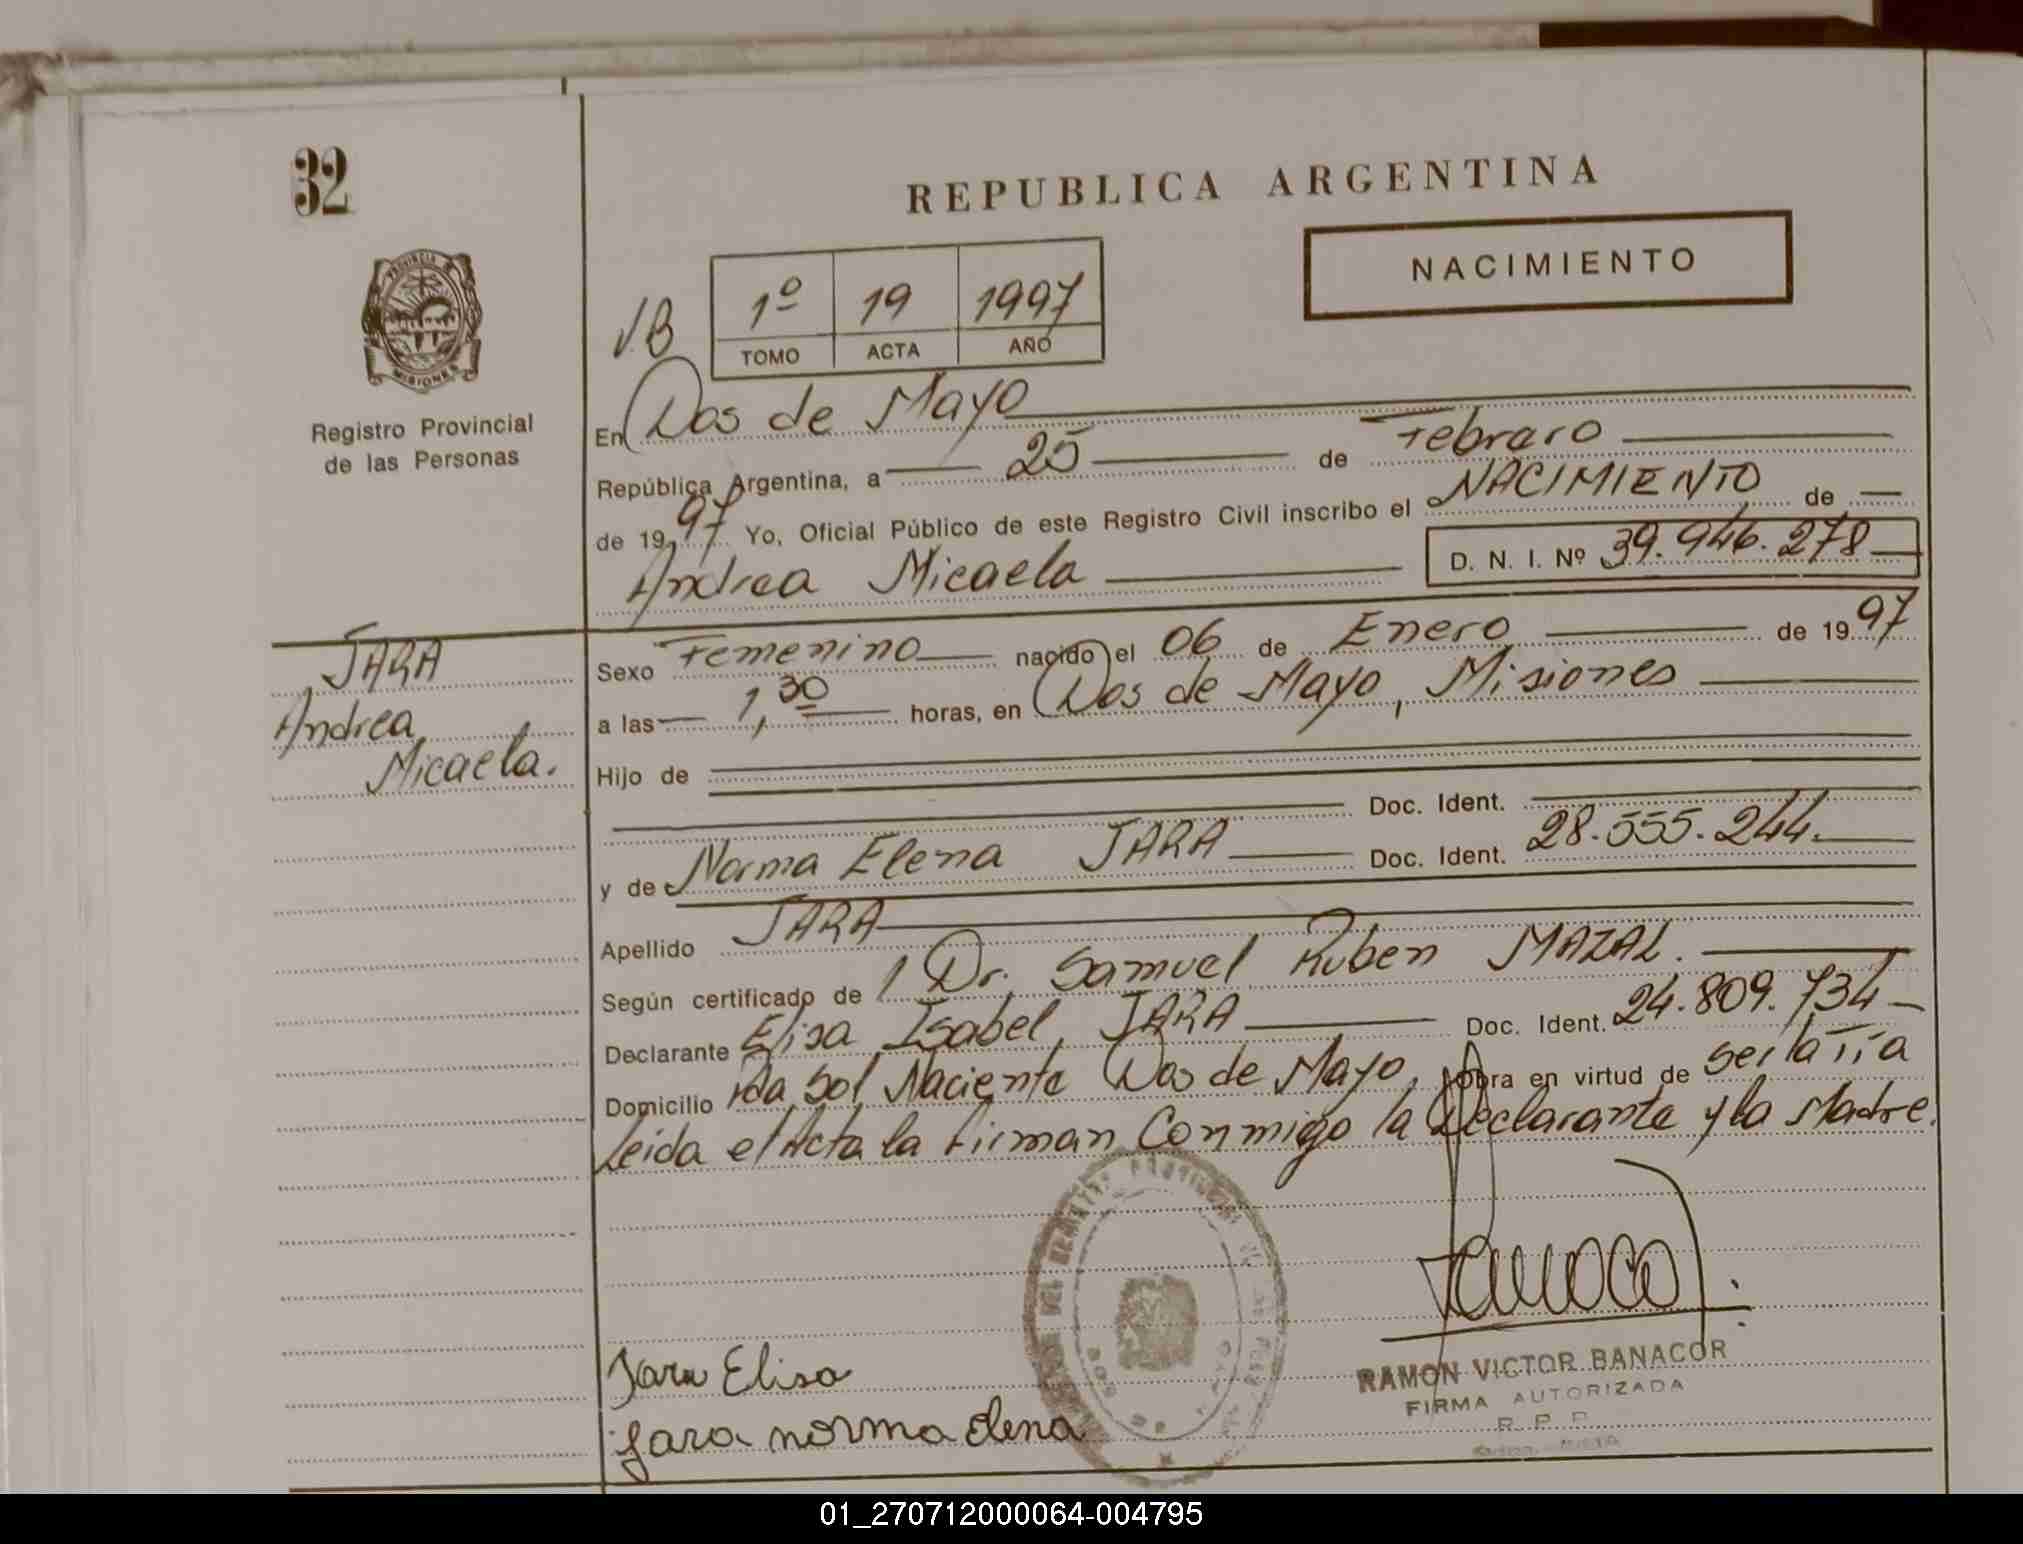 32
REPUBLICA ARGENTINA
NACIMIENTO
PROVINCIA DE
MISIONES
Registro Provincial
de las Personas
V.B
1º 19 1997
TOMO ACTA AÑO
En Dos de Mayo
República Argentina, a 25 de Febraro
de 1997 Yo, Oficial Público de este Registro Civil inscribo el NACIMIENTO de
Andrea Micaela D. N. I. Nº 39.946.278
JARA
Andrea
Micaela.
Sexo Femenino nacido el 06 de Enero de 1997
a las 1,30 horas, en Dos de Mayo, Misiones
Hijo de
Doc. Ident.
y de Norma Elena JARA Doc. Ident. 28.555.244.
Apellido JARA
Según certificado de Dr. Samuel Ruben MAZAL.
Declarante Elisa Isabel JARA Doc. Ident. 24.809.734
Domicilio Sol Naciente Dos de Mayo, obra en virtud de ser la Tía
Leida el Acta la Firman Conmigo la Declarante y la Madre.
Jara Elisa
Jara norma Elena
RAMON VICTOR BANACOR
FIRMA AUTORIZADA
R. P. P.
01_270712000064-004795